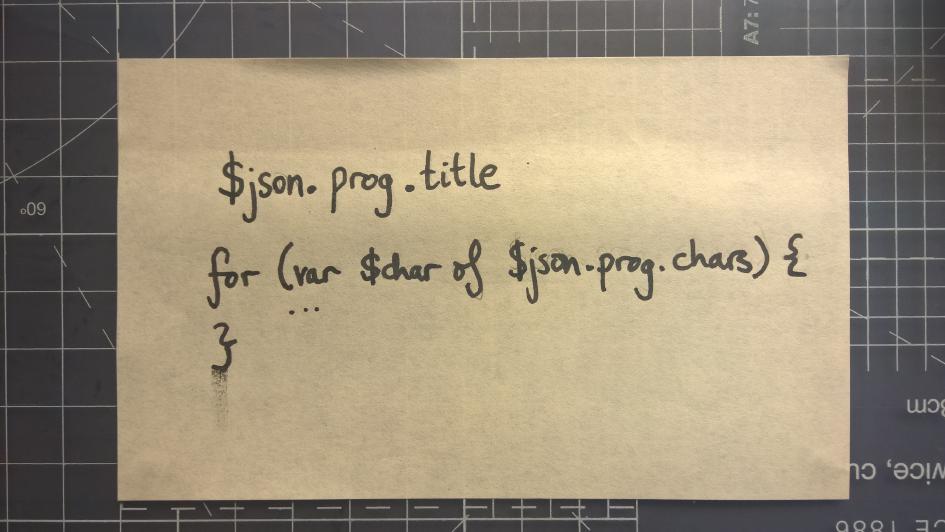 $json.prog.title
for (var $char of $json.prog.chars) {
...
}
A7:7
60°
8cm
vice, cu
CE 1886